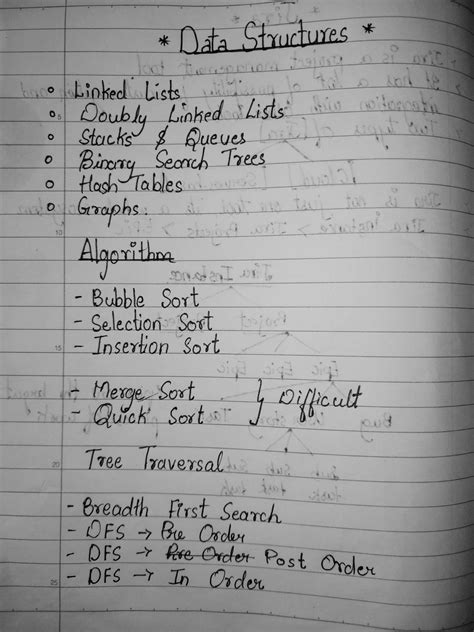 * Data Structures *
Linked Lists
Doubly Linked Lists
Stacks & Queues
Binary Search Trees
Hash Tables
Graphs.
Algorithm
- Bubble Sort
- Selection Sort
- Insertion Sort
- Merge Sort } Difficult
- Quick Sort
Tree Traversal
- Breadth First Search
- DFS → Pre Order
- DFS → Pre Order Post Order
- DFS → In Order